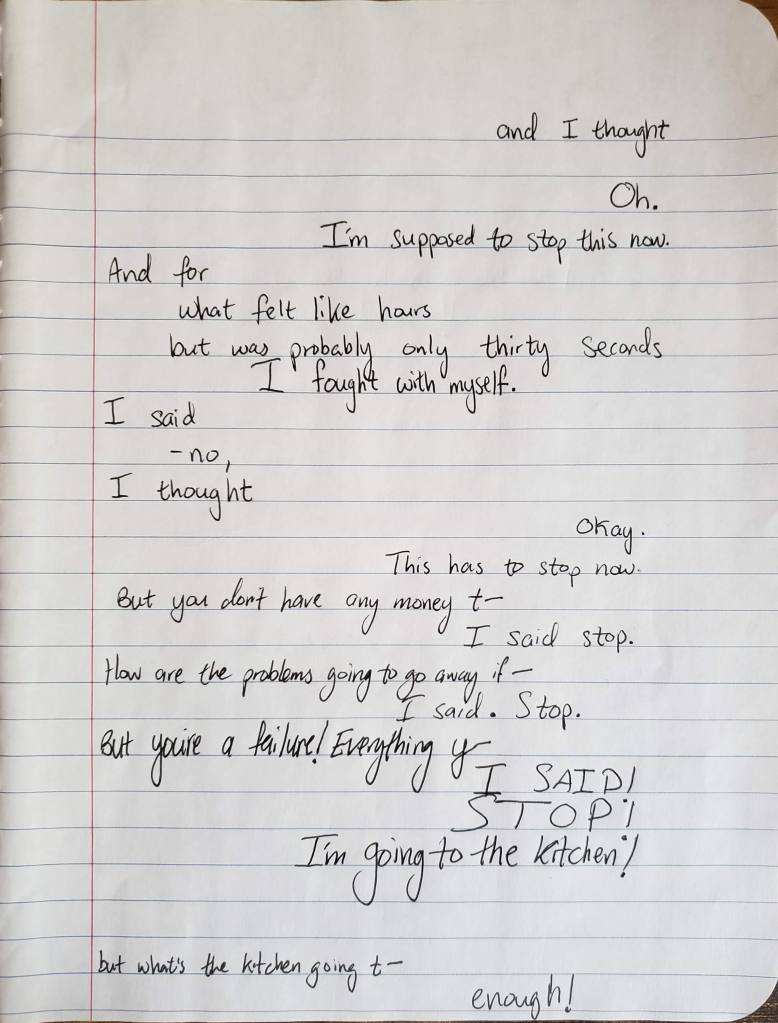 and I thought
Oh.
I'm supposed to stop this now.
And for
what felt like hours
but was probably only thirty seconds
I fought with myself.
I said
-no,
I thought
Okay.
This has to stop now.
But you don't have any money t-
I said stop.
How are the problems going to go away if-
I said. Stop.
But you're a failure! Everything y-
I SAID!
STOP!
I'm going to the kitchen!
but what's the kitchen going t-
enough!